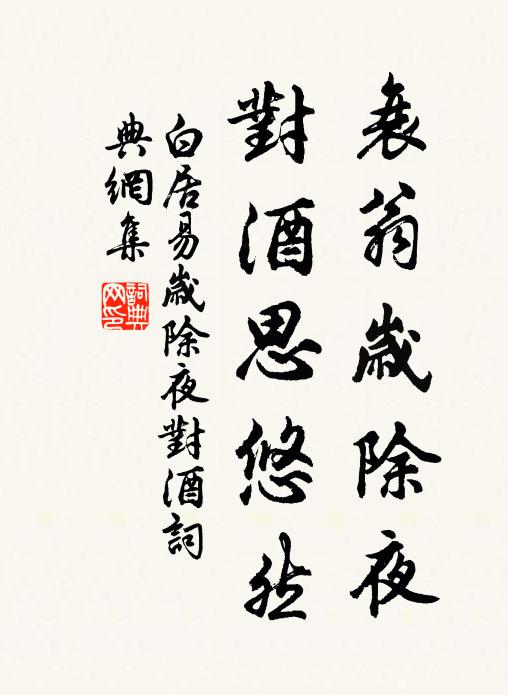 衰翁歲除夜
對酒思悠然
白居易歲除夜對酒詞
典網集
詞典网印